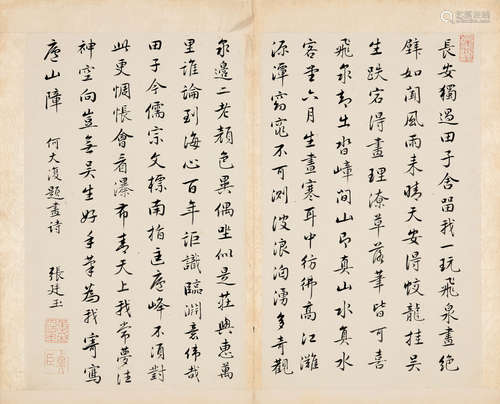 長安獨過田子舍留我一玩飛泉畫絕
壁如聞風雨來晴天安得蛟龍挂吳
生跌宕得畫理潦草落筆皆可喜
飛泉卻出沓嶂間山即真山水真水
客堂六月生晝寒耳中彷彿高江灘
源潭窈窕不可測波浪洶湧多奇觀
泉邊二老顏色異偶坐似是莊與惠萬
里誰論到海心百年詎識臨淵意偉哉
田子今儒宗文標南指匡廬峰不須對
此更惆悵會看瀑布青天上我常夢往
神空向豈無吳生好手筆為我寄寫
廬山障 何大復題畫詩 張廷玉